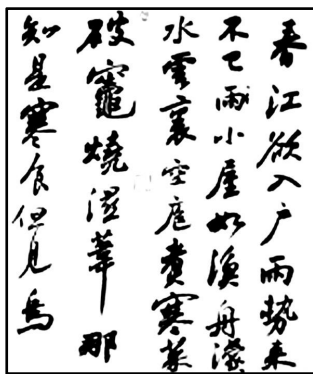 春江欲入户雨勢来
不已雨小屋如漁舟濛
水雲裏空庖煮寒菜
破竈燒濕葦那
知是寒食但見烏